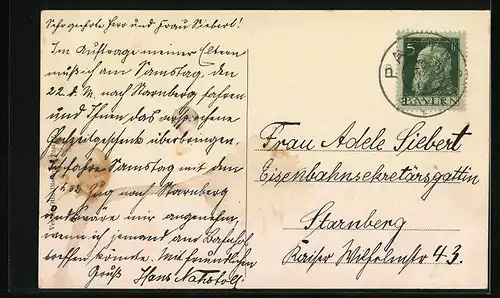 Sehr geehrte Herr und Frau Siebert!
Im Auftrage meiner Eltern
muß ich am Samstag, den
22. d. M. nach Starnberg fahren
und Ihnen das
Hochzeitsgeschenk überbringen.
Ich fahre Samstag mit dem
Zug nach Starnberg
und wäre mir angenehm,
wenn ich jemand am Bahnhof
treffen könnte. Mit freundlichen
Gruß Hans
5
BAYERN
Frau Adele Siebert
Eisenbahnsekretärsgattin
Starnberg
Kaiser Wilhelmstr 43.